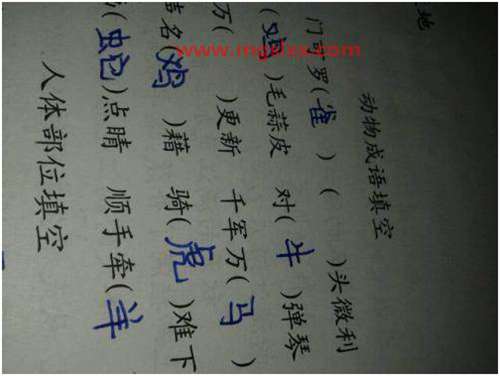 地
动物成语填空
门可罗(雀) ( )头微利
( )毛蒜皮 对(牛)弹琴
万( )更新 千军万(马)
名(鸡)藉 骑(虎)难下
(蛇)点睛 顺手牵(羊)
人体部位填空